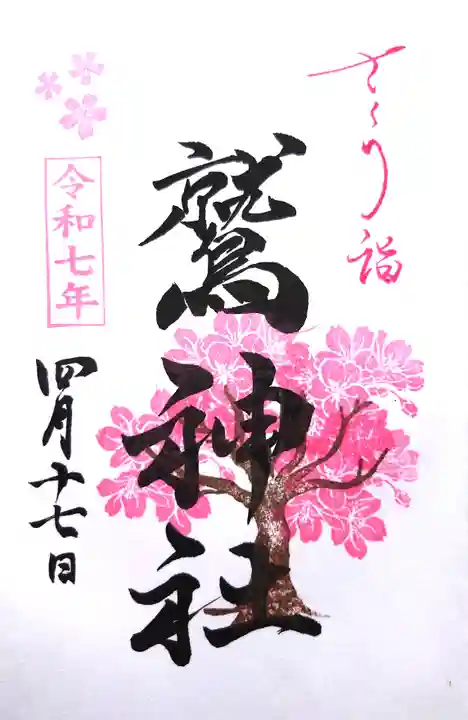 さくら詣
鷲神社
令和七年
四月十七日